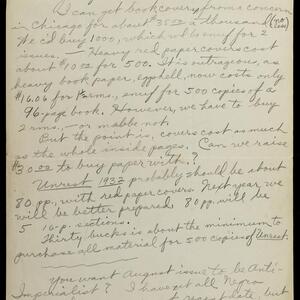 I can get book covers from a concern
in Chicago for about $35.00 a thousand
We'd buy 1000, which w'd be enuf for 2
issues. — Heavy red paper covers cost
about $10.00 for 500. It is outrageous, as
heavy book paper, eggshell, now costs only
$16.06 for 8 rms, enuf for 500 copies of a
96-page book. However, we have to buy
2 rms, — or mabbe not.
But the point is, covers cost as much
as the whole inside pages. Can we raise
$30.00 to buy paper with?
Unrest 1932 probably should be about
80 pp, with red paper covers. Next year we
will be better prepared. 80 pp, will be
5 16-p. sections.
Thirty bucks is about the minimum to
purchase all material for 500 copies of Unrest.
You want August issue to be Anti-
Imperialist? I have get all Negro
late, but